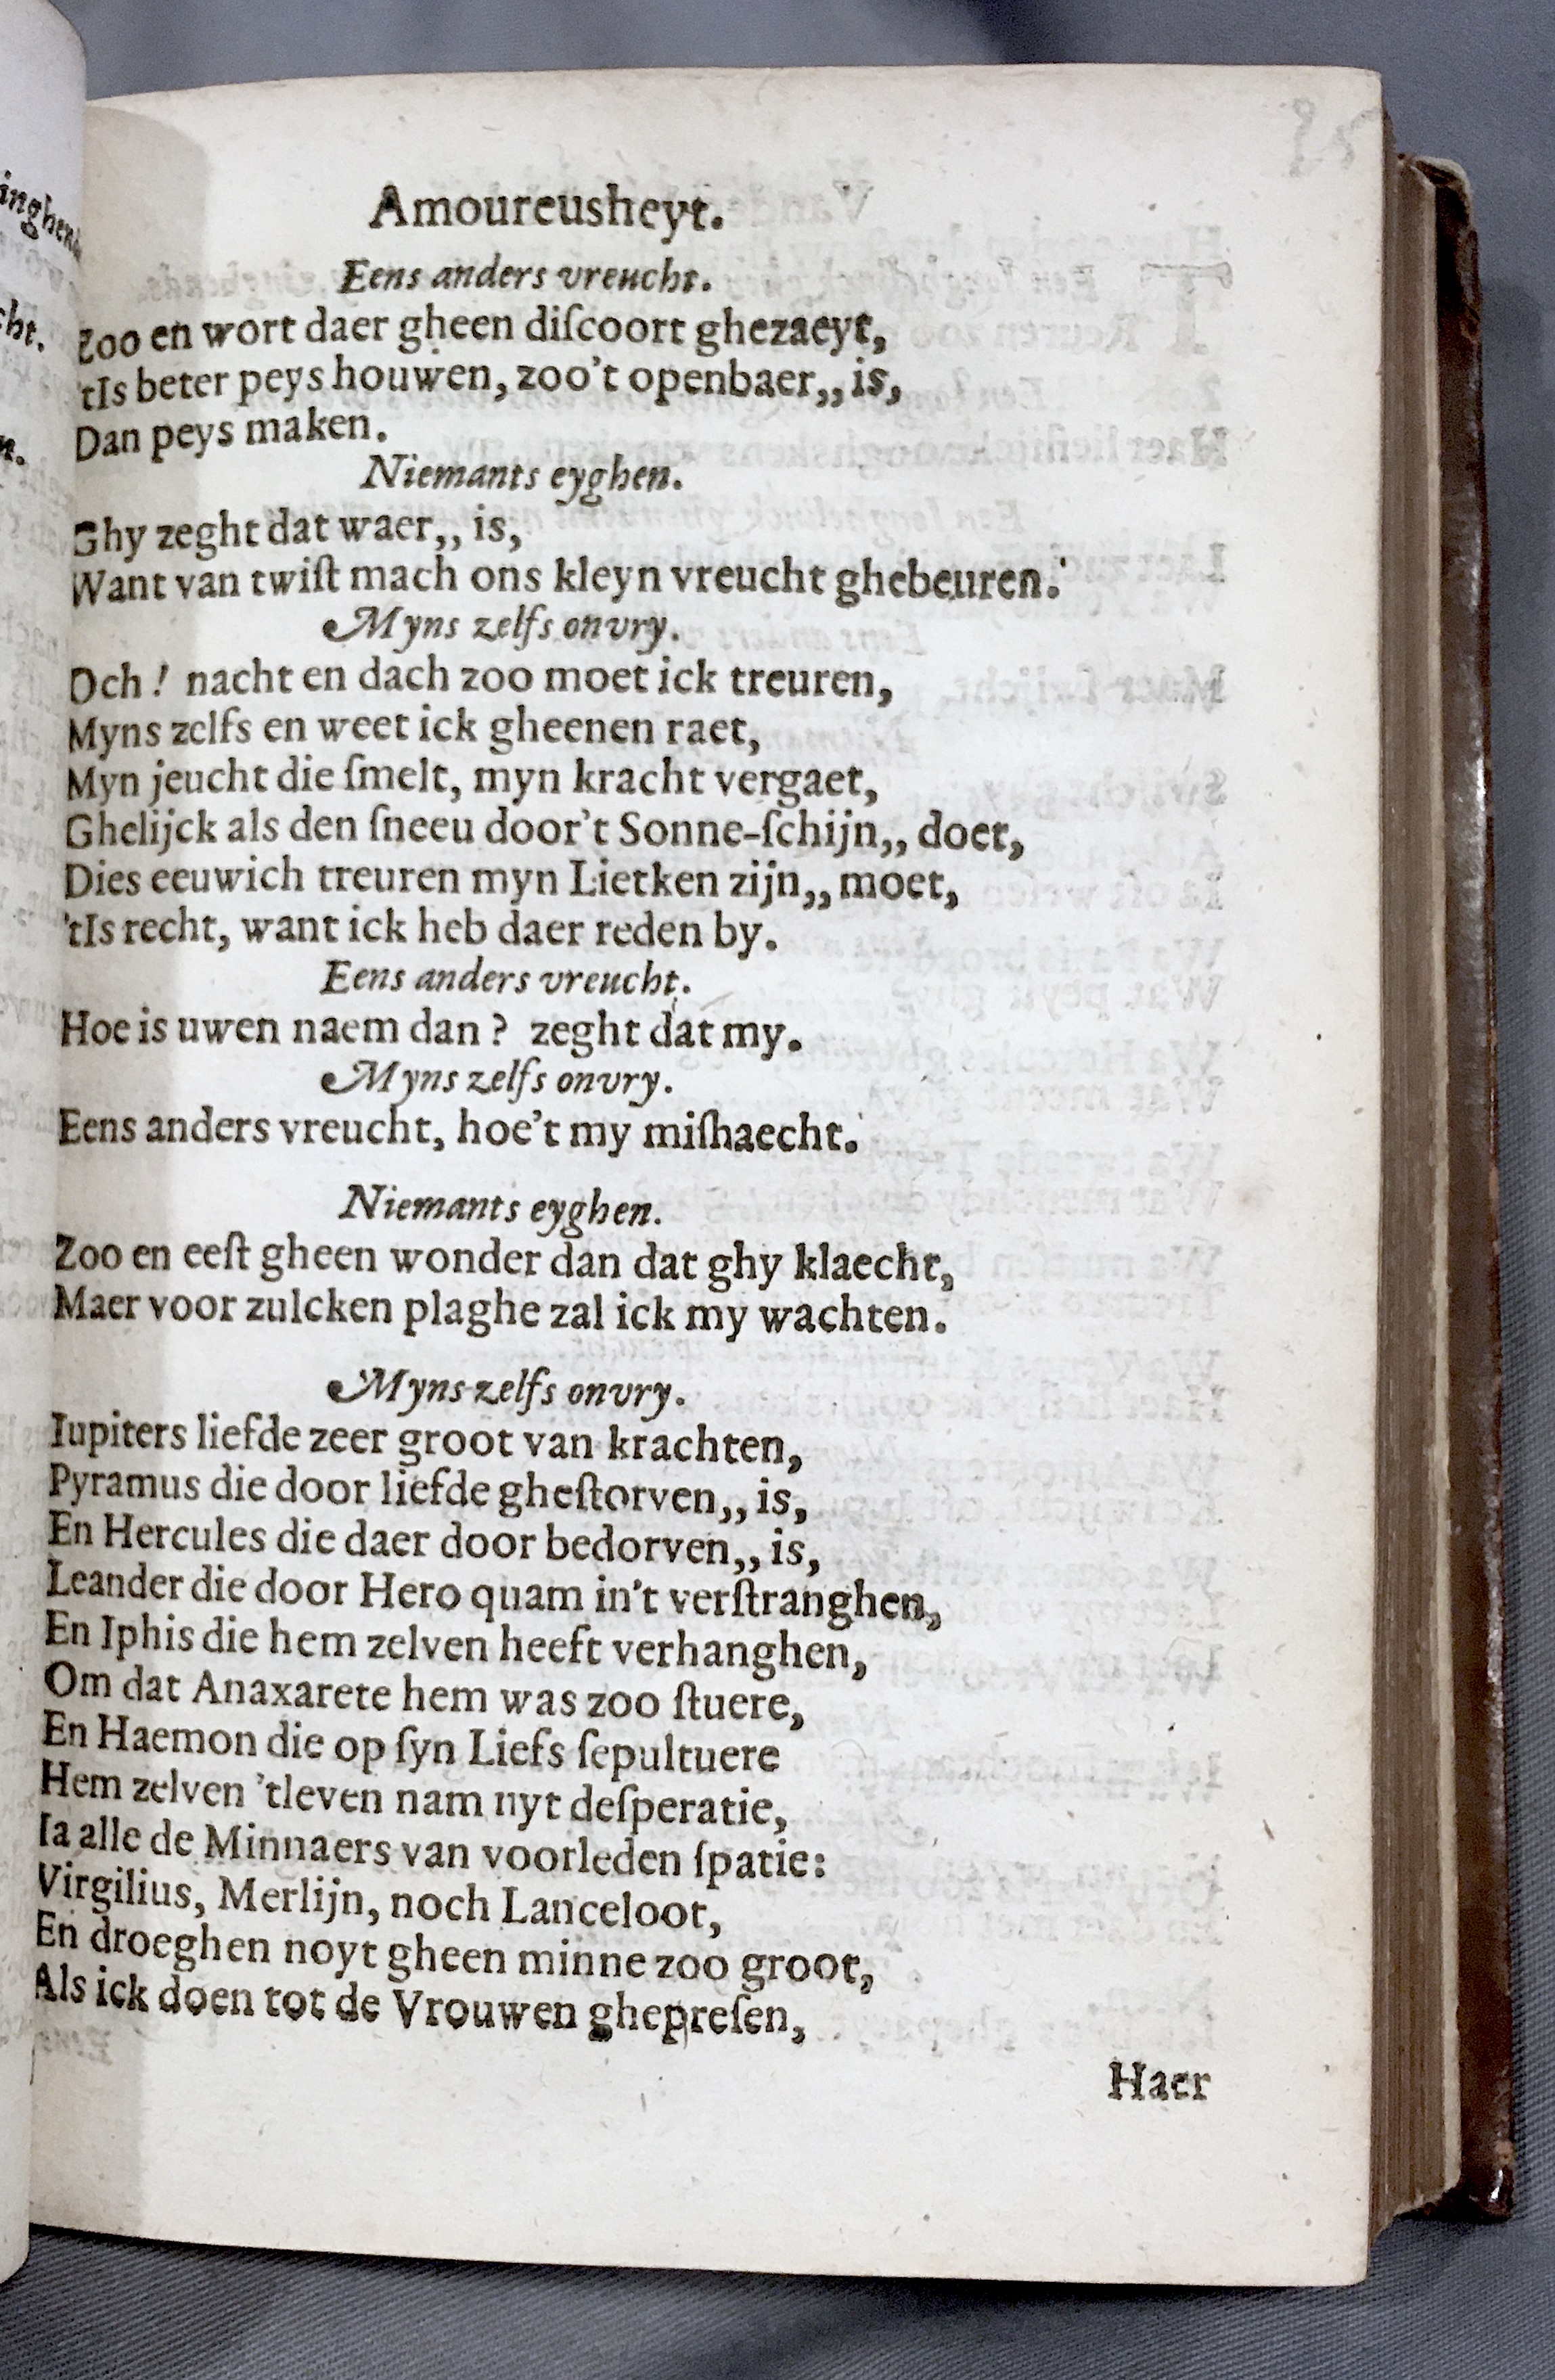 Amoureusheyt.
Eens anders vreucht.
Zoo en wort daer gheen diſcoort ghezaeyt,
'tIs beter peys houwen, zoo't openbaer,, is,
Dan peys maken.
Niemants eyghen.
Ghy zeght dat waer,, is,
Want van twiſt mach ons kleyn vreucht ghebeuren.
Myns zelfs onvry.
Och! nacht en dach zoo moet ick treuren,
Myns zelfs en weet ick gheenen raet,
Myn jeucht die ſmelt, myn kracht vergaet,
Ghelijck als den ſneeu door't Sonne-ſchijn,, doet,
Dies eeuwich treuren myn Lietken zijn,, moet,
'tIs recht, want ick heb daer reden by.
Eens anders vreucht.
Hoe is uwen naem dan? zeght dat my.
Myns zelfs onvry.
Eens anders vreucht, hoe't my miſhaecht.
Niemants eyghen.
Zoo en eeſt gheen wonder dan dat ghy klaecht,
Maer voor zulcken plaghe zal ick my wachten.
Myns zelfs onvry.
Iupiters liefde zeer groot van krachten,
Pyramus die door liefde gheſtorven,, is,
En Hercules die daer door bedorven,, is,
Leander die door Hero quam in't verſtranghen,
En Iphis die hem zelven heeft verhanghen,
Om dat Anaxarete hem was zoo ſtuere,
En Haemon die op ſyn Liefs ſepultuere
Hem zelven 'tleven nam uyt deſperatie,
Ia alle de Minnaers van voorleden ſpatie:
Virgilius, Merlijn, noch Lanceloot,
En droeghen noyt gheen minne zoo groot,
Als ick doen tot de Vrouwen ghepreſen,
Haer